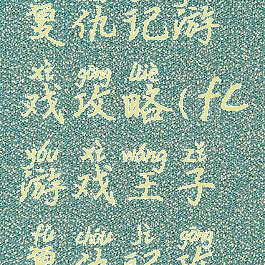 复仇记游
xì gōng lüè
戏攻略(fc
yóu xì wáng zǐ
游戏王子
fù chóu jì gōng
复仇记攻